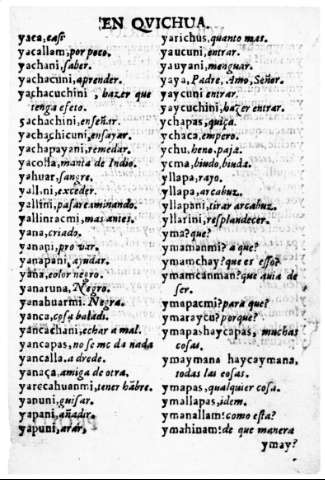 EN QVICHUA.
yaca, casi
yacallam, por poco.
yachani, saber.
yachacuni, aprender.
yachacuchini, hazer que
tenga efeto.
yachachini, enseñar.
yachachicuni, ensayar.
yachapayani, remedar.
yacolla, manta de Indio.
yahuar, sangre.
yallini, exceder.
yallini, passar caminando.
yallinracmi, mas antes.
yana, criado.
yanani, provar.
yanapani, ayudar.
yana, color negro.
yanaruna, Negro.
yanahuarmi. Negra.
yanca, cosa baladi.
yancachani, echar a mal.
yancapas, no se me da nada
yancalla. a drede.
yanaça, amiga de otra.
yarecahuanmi, tener hãbre.
yanuni, guisar.
yapani, añadir.
yapuni, arar,
yarichus, quanto mas.
yaucuni, entrar.
yauyani, menguar.
yaya, Padre, Amo, Señor.
yaycuni entrar.
yaycuchini, hazer entrar.
ychapas, quiça.
ychaca, empero.
ychu, heno, paja.
ycma, biudo, biuda.
yllapa, rayo.
yllapa, arcabuz.
yllapani, tirar arcabuz.
yllarini, resplandecer.
yma? que?
ymamanmi? a que?
ymamchay? que es esso?
ymamcanman? que auia de
ser.
ymapacmi? para que?
ymaraycu? porque?
ymapas haycapas, muchas
cosas.
ymaymana haycaymana,
todas las cosas.
ymapas, qualquier cosa.
ymallapas, idem.
ymanallam? como esta?
ymahinam? de que manera
ymay?